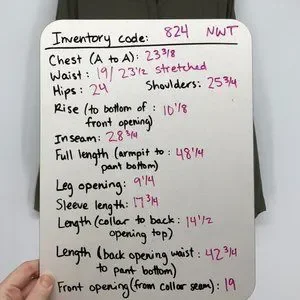 Inventory code: 824 NWT
Chest (A to A): 23 3/8
Waist: 19/23 1/2 stretched
Hips: 24 Shoulders: 25 3/4
Rise (to bottom of : 10 1/8
front opening)
Inseam: 28 3/4
Full length (armpit to : 48 1/4
pant bottom)
Leg opening: 9 1/4
Sleeve length: 17 3/4
Length (collar to back : 14 1/2
opening top)
Length (back opening waist : 42 3/4
to pant bottom)
Front opening (from collar seam): 19